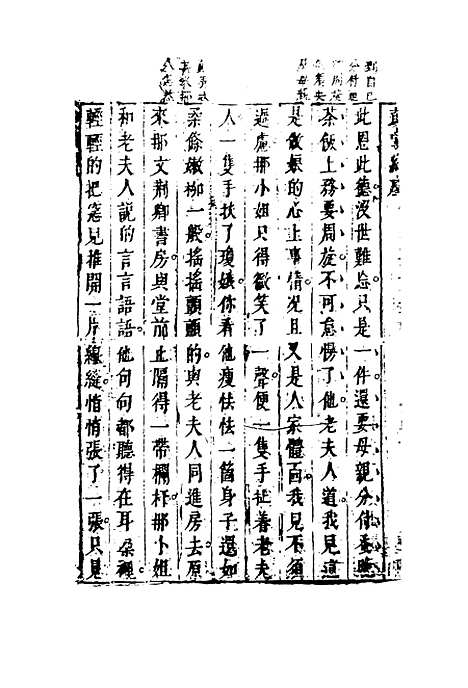 此恩此德沒世難忘只是一件還要母親分付委曉
茶飯上務要周旋不可怠慢了他老夫人道我兒這
是做娘的心上事情况且又是人家體面我兒不須
過慮那小姐只得微笑了一聲便一隻手扯着老夫
人一隻手扶了瓊娥你看他瘦怯怯一箇身子還如
柔條嫩柳一般搖搖顫顫的與老夫人同進房去原
來那文荆卿書房與堂前止隔得一帶欄杆那小姐
和老夫人說的言言語語他句句都聽得在耳朶裡
輕輕的把窓兒推開一片線縫悄悄張了一張只見